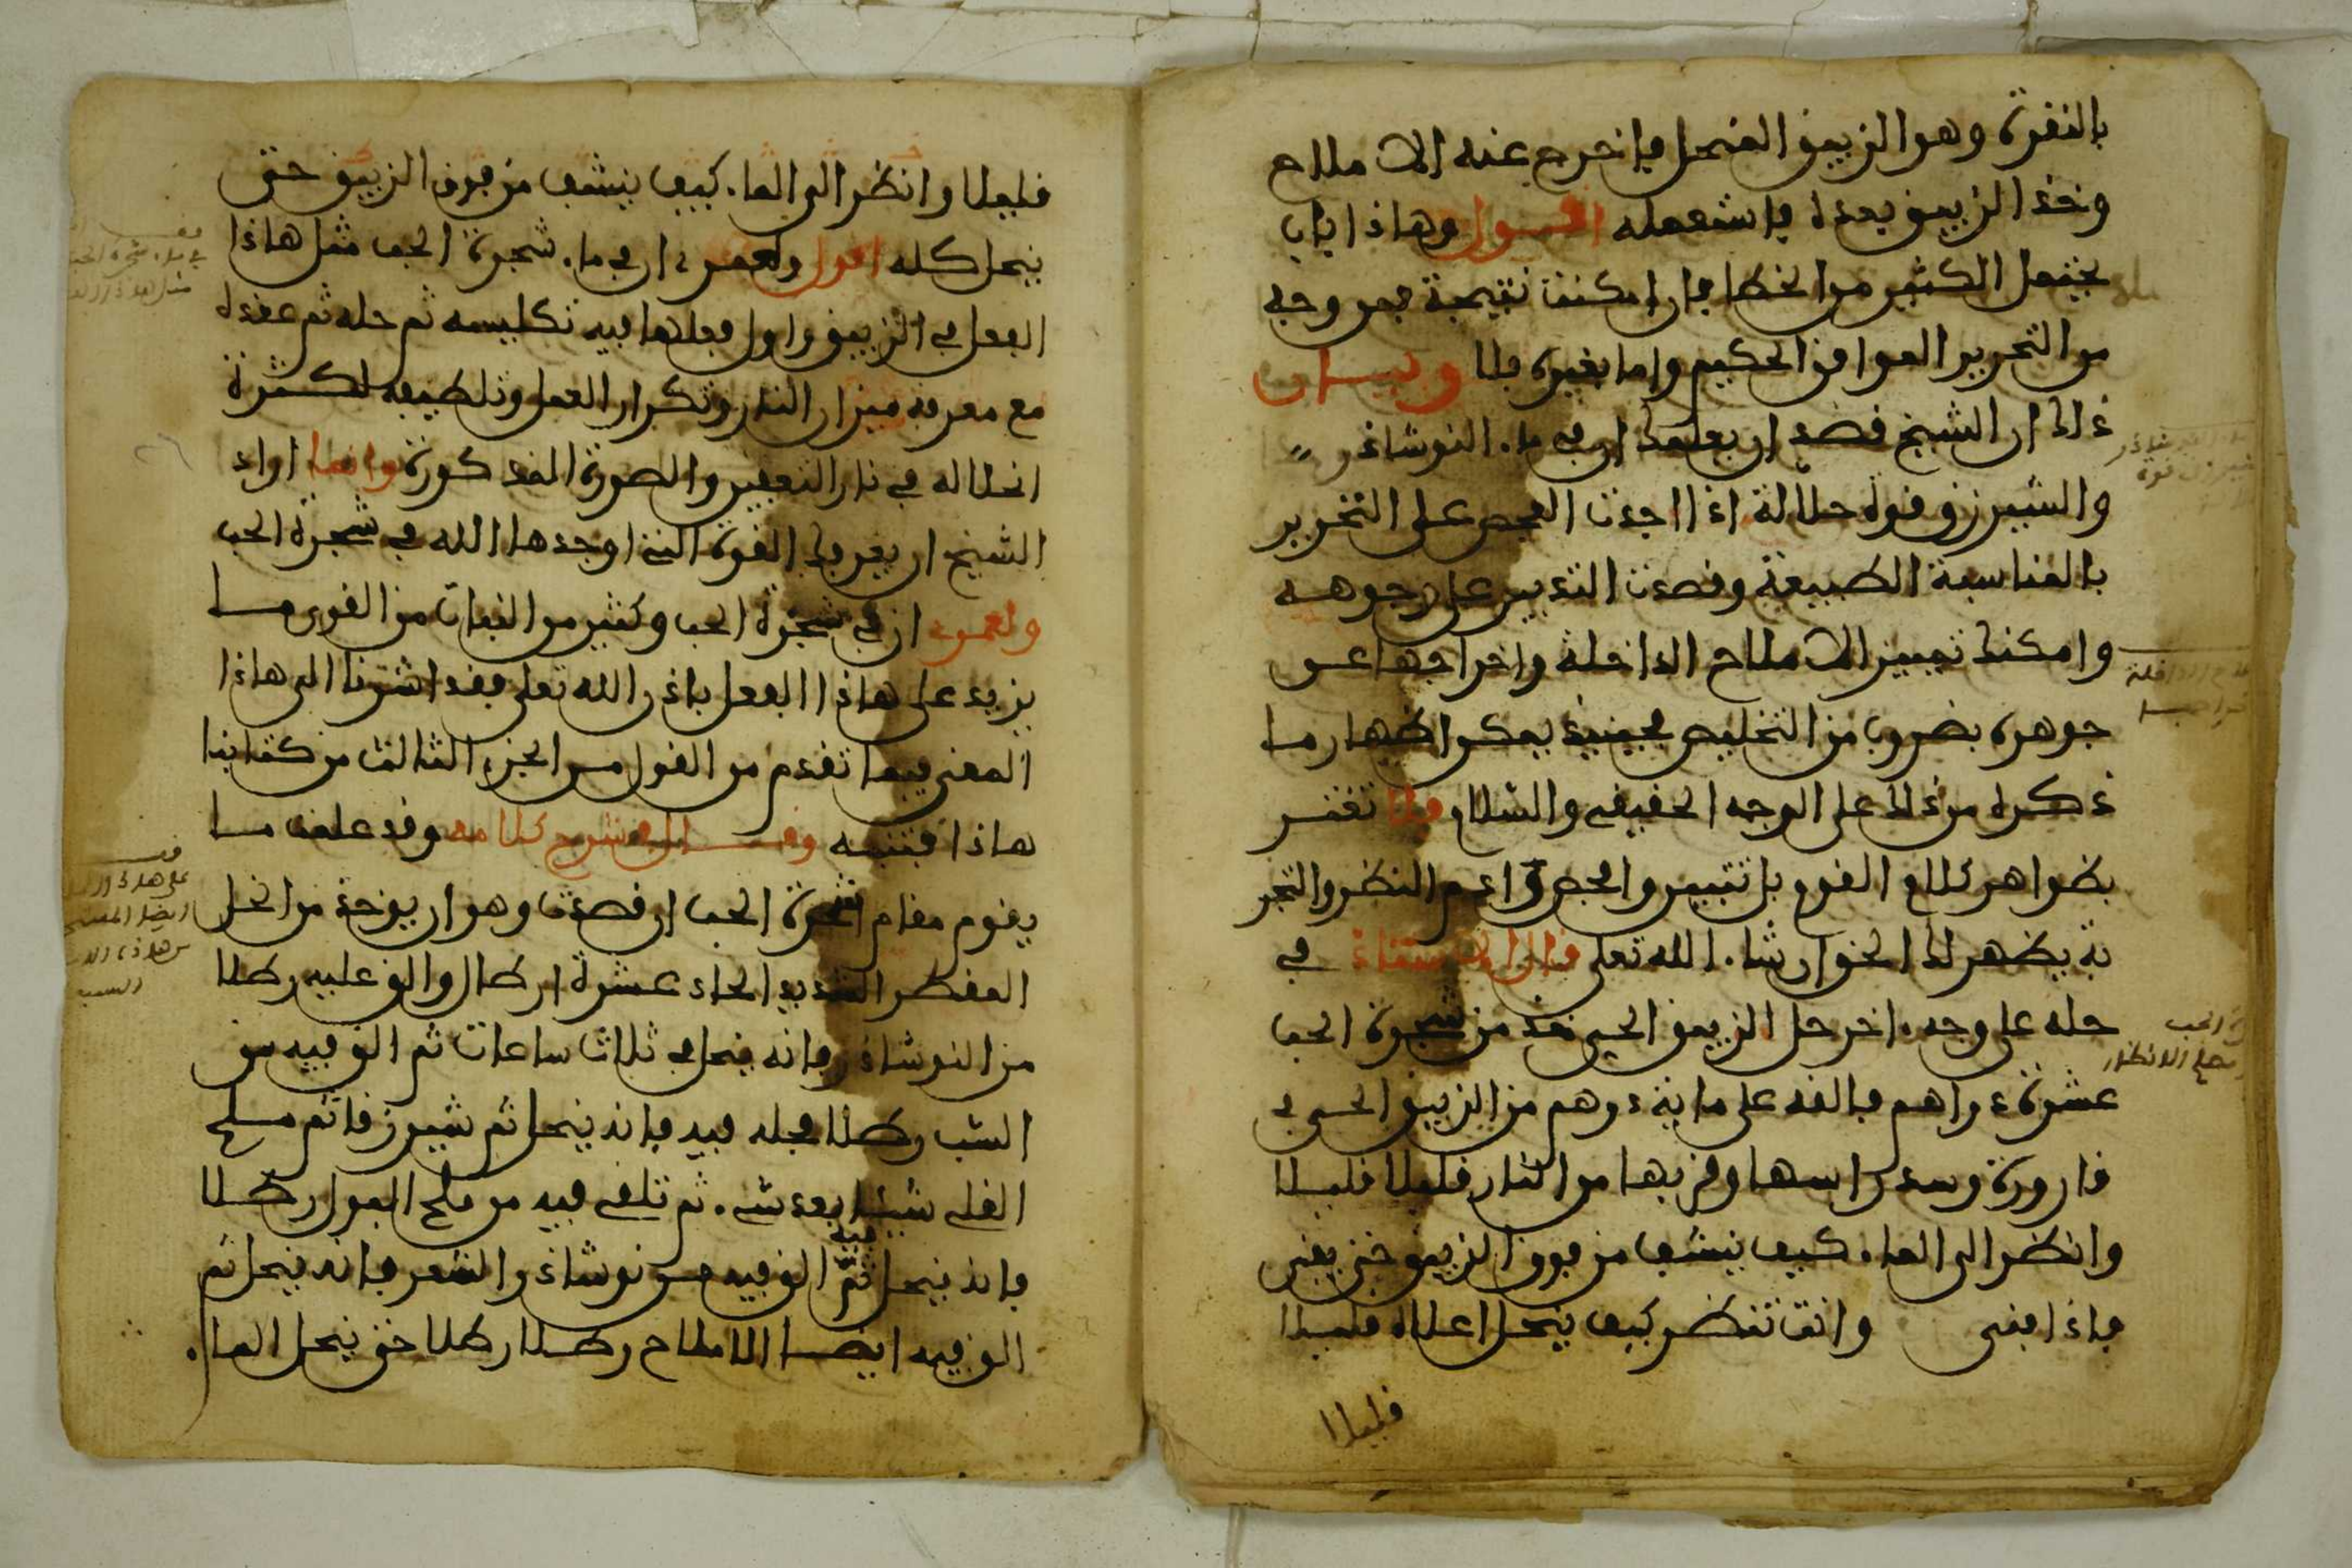 بالنقرة وهو الزيبق المنحل فاخرج عنه الاملاح
وخذ الزيبق بعده فاستعمله اقول وهاذا باب
يحتمل الكثير من الخطا فان امكنت نتيجة فمن وجه
من التحرير الموافق الحكيم واما بغيره فلا وبيان
ذالك ان الشيخ قصد ان يعلمك ان في ماء النوشاذر
والشيرزق قوة حلالة اذا اجدت الفحص على التحرير
بالمناسبة الطبيعة وقصدت التدبير على وجوهه
وامكنك تمييز الاملاح الداخلة واخراجها عن
جوهره بضروب من التخليص فحينيذ يمكن اظهار ما
ذكره من ذالك على الوجه الحقيقي والسلام فلا تغتر
بظواهر كلام القوم بل تثبت وافحص وادم النظر والتجر
بة يظهر لك الحق ان شاء الله تعلى قال في
حله على وجه اخر حل الزيبق الحي خذ من شجرة الحب
عشرة دراهم فالقه على ماية درهم من الزيبق الحي في
قارورة وسد راسها وقربها من النار قليلا قليلا
وانظر الى الماء كيف ينشف من فوق الزيبق حتى يفنى
فاذا فنى وانت تنظر كيف ينحل اعلاه قليلا
قليلا
قليلا وانظر الى الماء كيف ينشف من فوق الزيبق حتى
ينحل كله اقول ولعمري ان في ماء شجرة الحب مثل هاذا
الفعل في الزيبق واول فعلها فيه تكليسه ثم حله ثم عقده
مع معرفة ميزان النار وتكرار العمل وتلطيفه لكثرة
انحلاله في نار التعفين والصورة المذكورة وانما اراد
الشيخ ان يعرفك القوة التي اوجدها الله في شجرة الحب
ولعمري ان في شجرة الحب وكثير من النبات من القوى ما
يزيد على هاذا الفعل باذن الله تعلى فقد اشرنا الى هاذا
المعنى فيما تقدم من القول من الجزء الثالث من كتابنا
هاذا فتنبه وقال في شرح كلامه وقد علمت ما
يقوم مقام شجرة الحب ان قصدت وهو ان يوخذ من الخل
المقطر الشديد الحاد عشرة ارطال والق عليه رطلا
من النوشاذر فانه ينحل في ثلاث ساعات ثم الق فيه من
الشب رطلا فحله فيه فانه ينحل ثم شيرزقا ثم ملح
القلي شيئا بعد شيء ثم تلقي فيه من ملح البول رطلا
فانه ينحل فيه ثم الق فيه من نوشاذر الشعر فانه ينحل ثم
الق فيه ايضا الاملاح رطلا رطلا حتى ينحل الماء